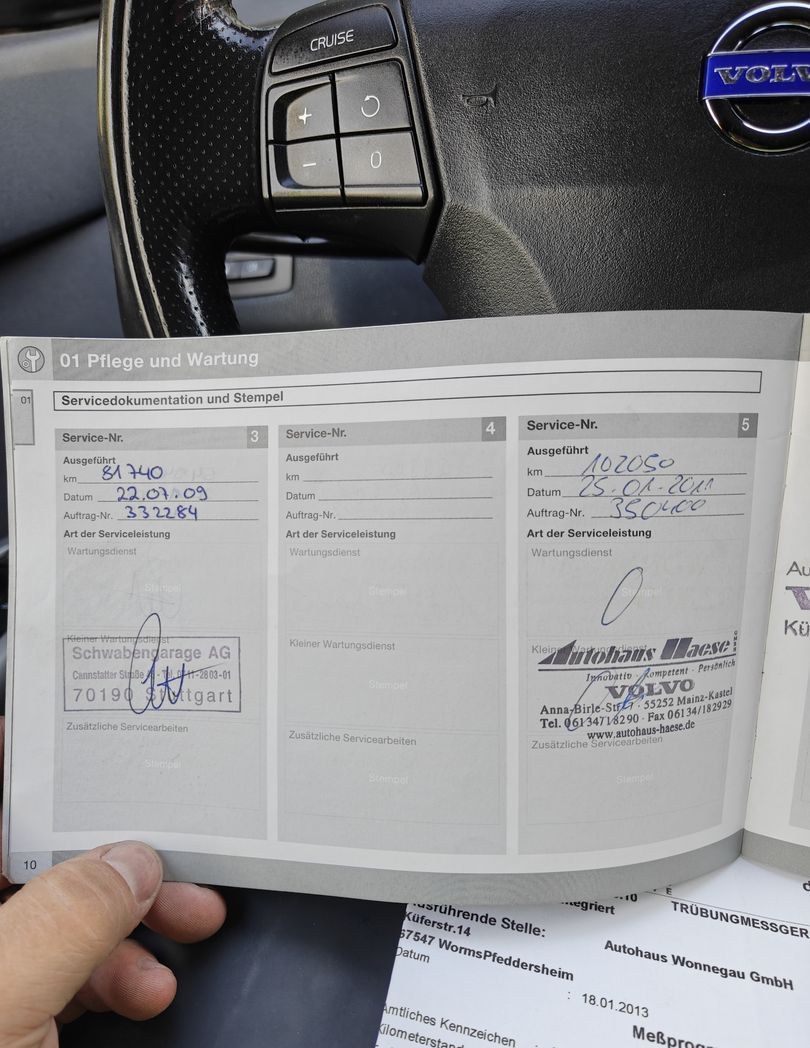 CRUISE
+
-
0
VOLV
01 Pflege und Wartung
01
Servicedokumentation und Stempel
Service-Nr. 3
Ausgeführt
km 81740
Datum 22.07.09
Auftrag-Nr. 332284
Art der Serviceleistung
Wartungsdienst
Stempel
Kleiner Wartungsdienst
Schwabengarage AG
Cannstatter Straße - Tel. 11-2803-01
70190 Stuttgart
Zusätzliche Servicearbeiten
Stempel
Service-Nr. 4
Ausgeführt
km
Datum
Auftrag-Nr.
Art der Serviceleistung
Wartungsdienst
Stempel
Kleiner Wartungsdienst
Stempel
Zusätzliche Servicearbeiten
Stempel
Service-Nr. 5
Ausgeführt
km 102050
Datum 25.01.2011
Auftrag-Nr. 350400
Art der Serviceleistung
Wartungsdienst
Stempel
Kleiner Wartungsdienst
Autohaus Haese GMBH
Innovativ Kompetent - Persönlich
VOLVO
Anna-Birle-Str. 1 · 55252 Mainz-Kastel
Tel. 06134/18290 · Fax 06134/182929
www.autohaus-haese.de
Zusätzliche Servicearbeiten
Stempel
10
Au
V
Kü
tegriert
TRÜBUNGMESSGER
usführende Stelle:
Küferstr.14
67547 WormsPfeddersheim
Autohaus Wonnegau GmbH
Datum : 18.01.2013
Amtliches Kennzeichen
Meßprog
Kilometerstand